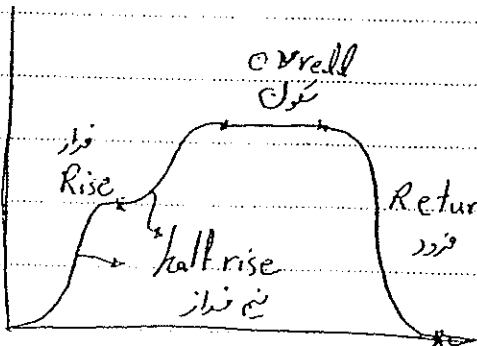 سکون
فراز
Rise
Retur
فرود
half rise
نیم فراز